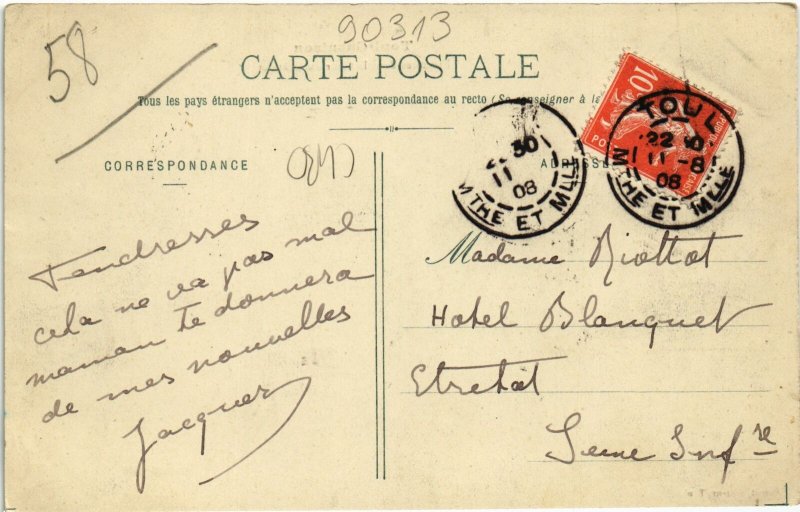 58
90313
CARTE POSTALE
Tous les pays étrangers n'acceptent pas la correspondance au recto (Se renseigner à la
CORRESPONDANCE
ADRESSE
10
TOUL
22
11-8
08
MTHE ET MLLE
30
11
08
MTHE ET MLLE
Tendresses
cela ne va pas mal
maman te donnera
de mes nouvelles
Jacques
Madame Riottot
Hotel Blanquet
Etretat
Seine Infre